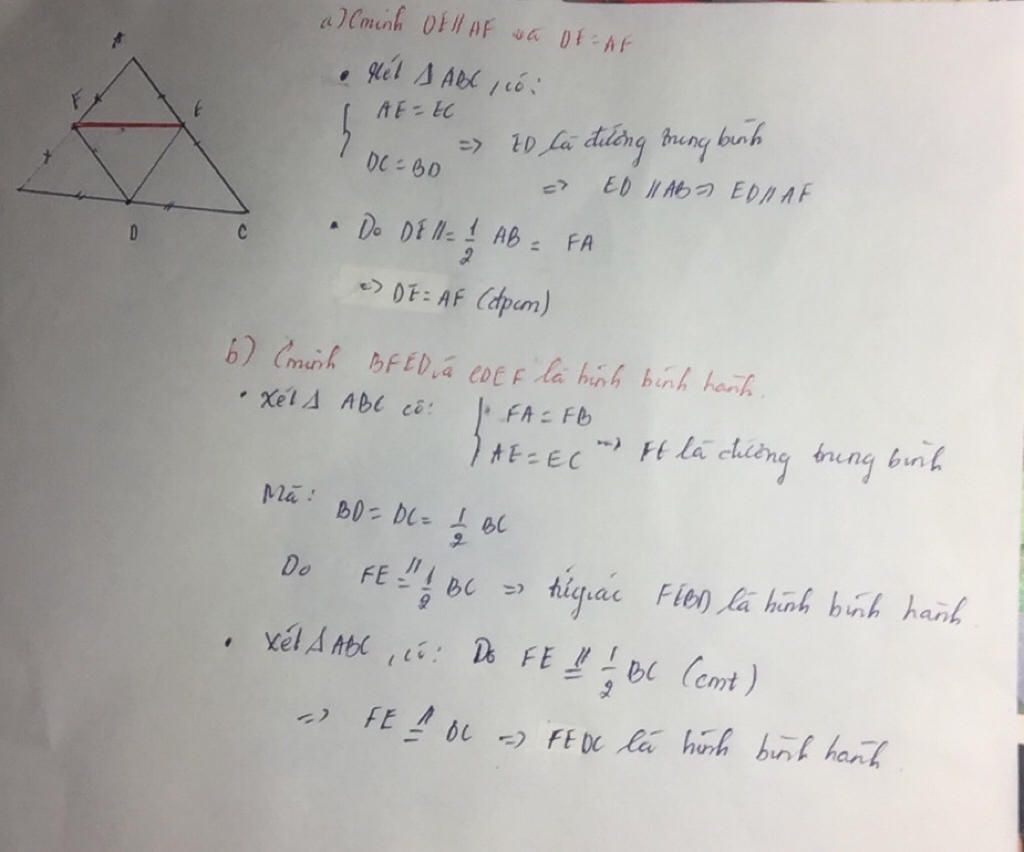 A
F
E
D
C
a) Cminh DE // AF và DE = AF
• Xét Δ ABC, có:
AE = EC
DC = BD
=> ED là đường trung bình
=> ED // AB => ED // AF
• Do DE // = 1/2 AB = FA
=> DE = AF (đpcm)
b) Cminh BFED và CDEF là hình bình hành.
• Xét Δ ABC có:
FA = FB
AE = EC
=> FE là đường trung bình
Mà: BD = DC = 1/2 BC
Do FE //= 1/2 BC => tứ giác FEBD là hình bình hành
• Xét Δ ABC, có: Do FE //= 1/2 BC (cmt)
=> FE //= DC => FEDC là hình bình hành